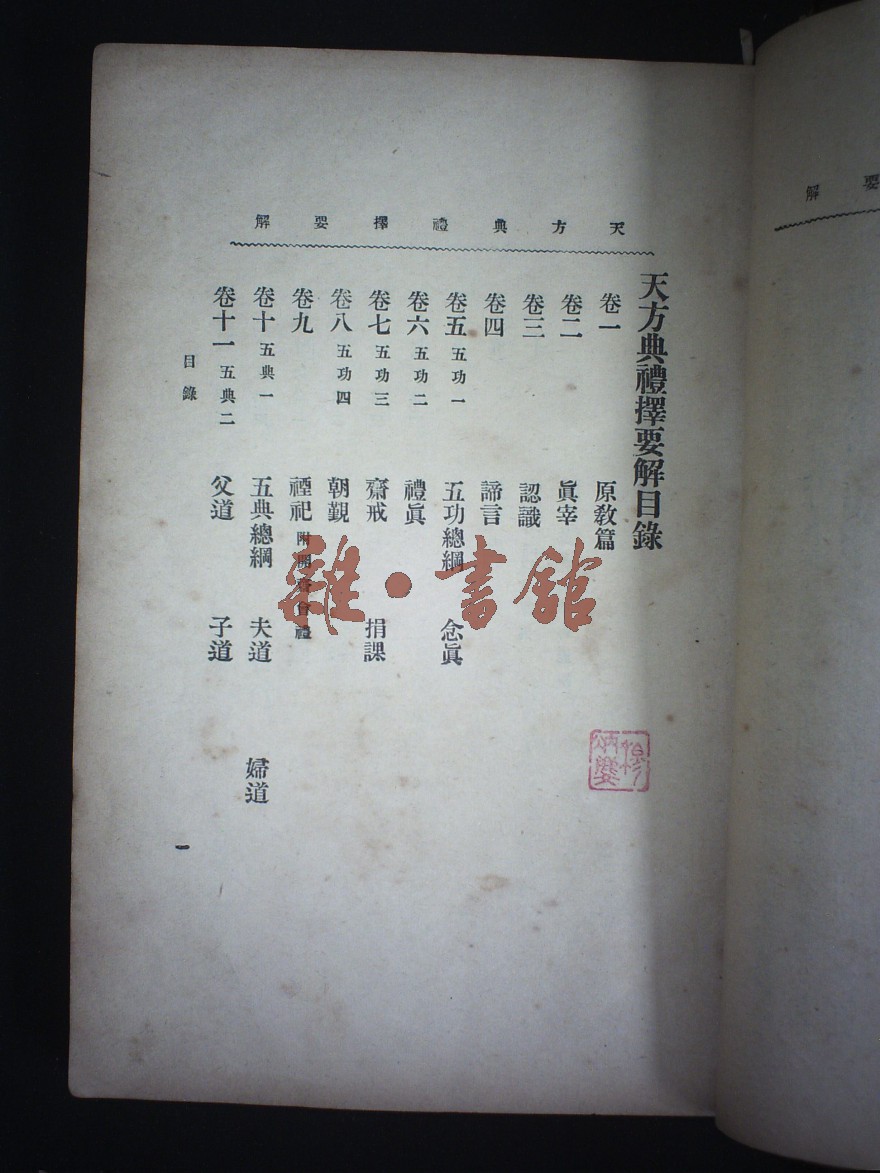 天方典禮擇要解
天方典禮擇要解目錄
卷一 原敎篇
卷二 眞宰
卷三 認識
卷四 諦言
卷五 五功一 五功總綱 念眞
卷六 五功二 禮眞
卷七 五功三 齋戒 捐課
卷八 五功四 朝覲
卷九 禋祀 附
卷十 五典一 五典總綱 夫道 婦道
卷十一 五典二 父道 子道
目錄
一
要解
雜·書館